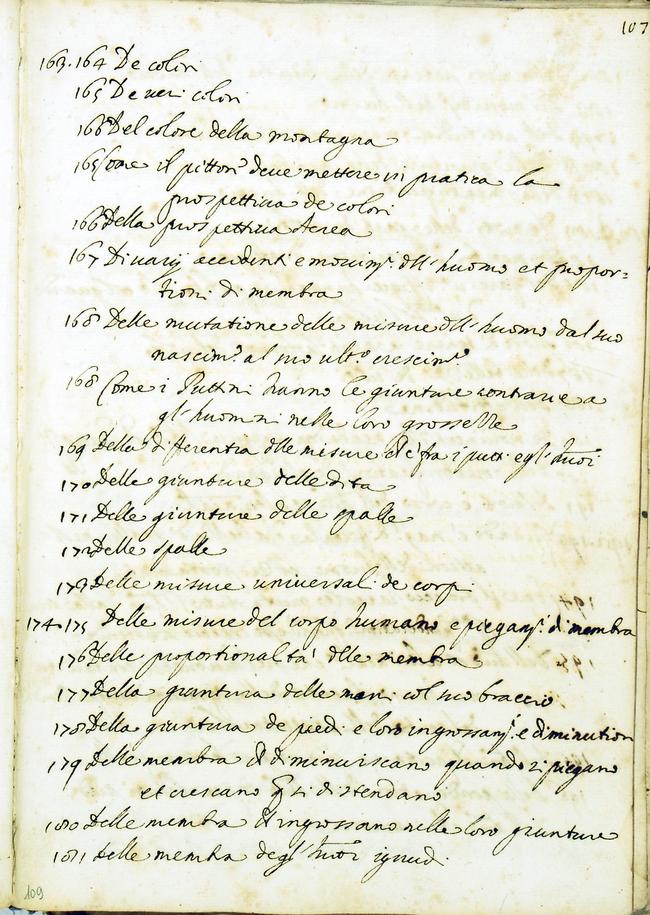 107
163.164 De colori
165 De veri colori
166 Del colore della montagna
165 Come il pittor' deve mettere in pratica la
prospettiva de colori
166 Della prospettiva Aerea
167 Di varij accidenti e movim.ti dell'huomo et propor=
tioni di membra
168 Delle mutatione delle misure dell'huomo dal suo
nascim.o al suo ult.o crescim.o
168 Come i Puttini hanno le giunture contrarie a
gl'huomini nelle loro grossezze
169 Della diferentia delle misure ch'è fra i putti e gl'huoi
170 Delle giunture delle dita
171 Delle giunture delle spalle
172 Delle spalle
173 Delle misure universali de corpi
174.175 Delle misure del corpo humano e piegam.ti di membra
176 Delle proportionalta' delle membra
177 Della giuntura delle mani col suo braccio
178 Della giuntura de piedi e loro ingrossam.ti e diminution
179 Delle membra che diminuiscano quando si piegano
et crescano qn si distendano
180 Delle membra ch'ingrossano nelle loro giunture
181 Delle membra degl'huoi ignudi
109